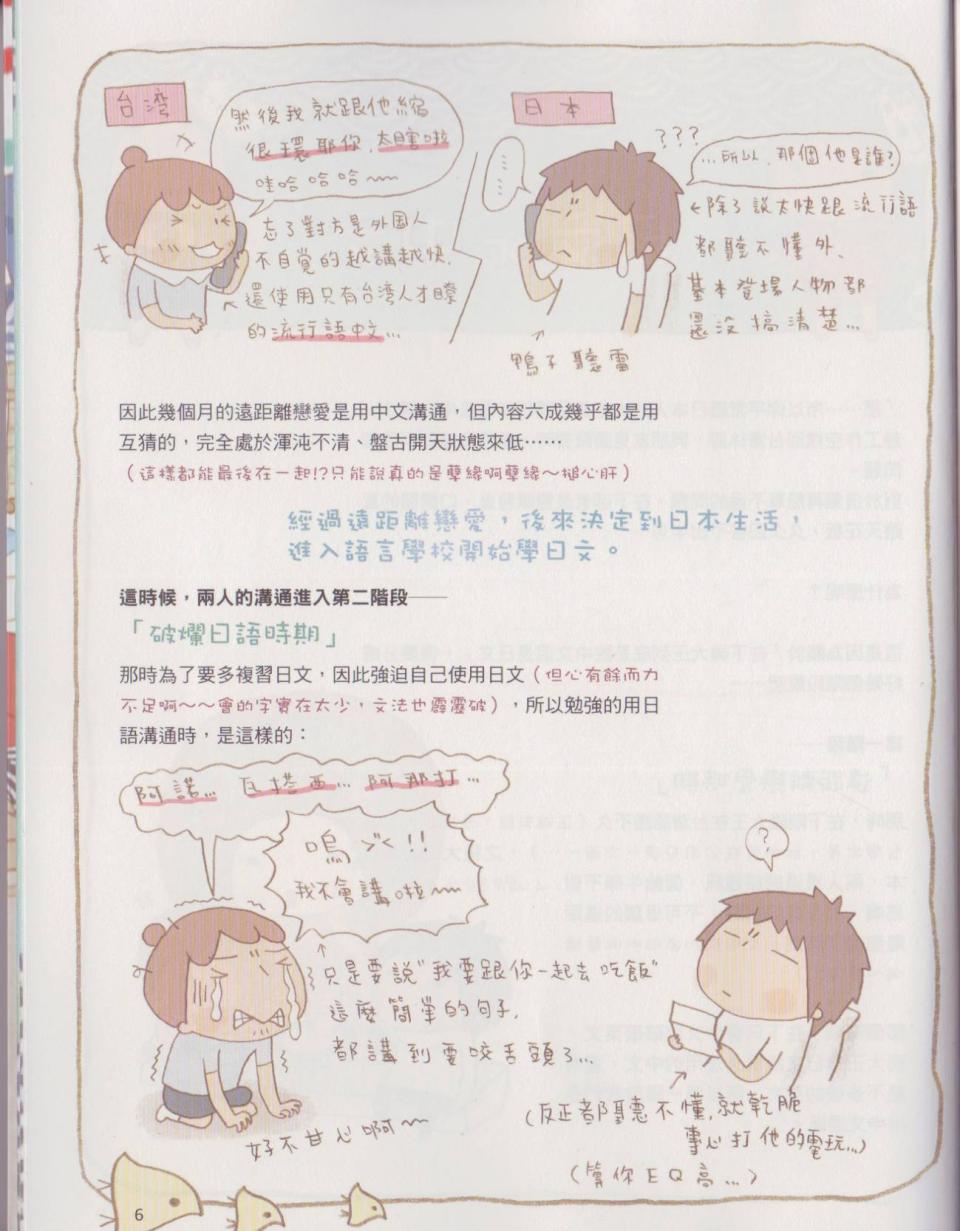 台湾
然後我就跟他縮
很環耶你,太瞎啦
哇哈哈哈~~
忘了對方是外国人
不自覚的越講越快,
還使用只有台湾人才瞭
的流行語中文…
日本
……
???
…所以,那個他是誰?
←除了說太快跟流行語
都聽不懂外、
基本登場人物都
還沒搞清楚…
鴨子聽雷
因此幾個月的遠距離戀愛是用中文溝通,但內容六成幾乎都是用
互猜的,完全處於渾沌不清、盤古開天狀態來低……
(這樣都能最後在一起!?只能說真的是孽緣啊孽緣~搥心肝)
經過遠距離戀愛,後來決定到日本生活,
進入語言學校開始學日文。
這時候,兩人的溝通進入第二階段——
「破爛日語時期」
那時為了要多複習日文,因此強迫自己使用日文(但心有餘而力
不足啊~~會的字實在太少,文法也霹靂破),所以勉強的用日
語溝通時,是這樣的:
阿諾… 瓦搭西… 阿那打…
嗚ㄍ!!
我不會講啦~~
只是要說"我要跟你一起去吃飯"
這麼簡單的句子,
都講到要咬舌頭了…
好不甘心啊~
?
(反正都聽不懂,就乾脆
專心打他的電玩…)
(算你EQ高…)
6